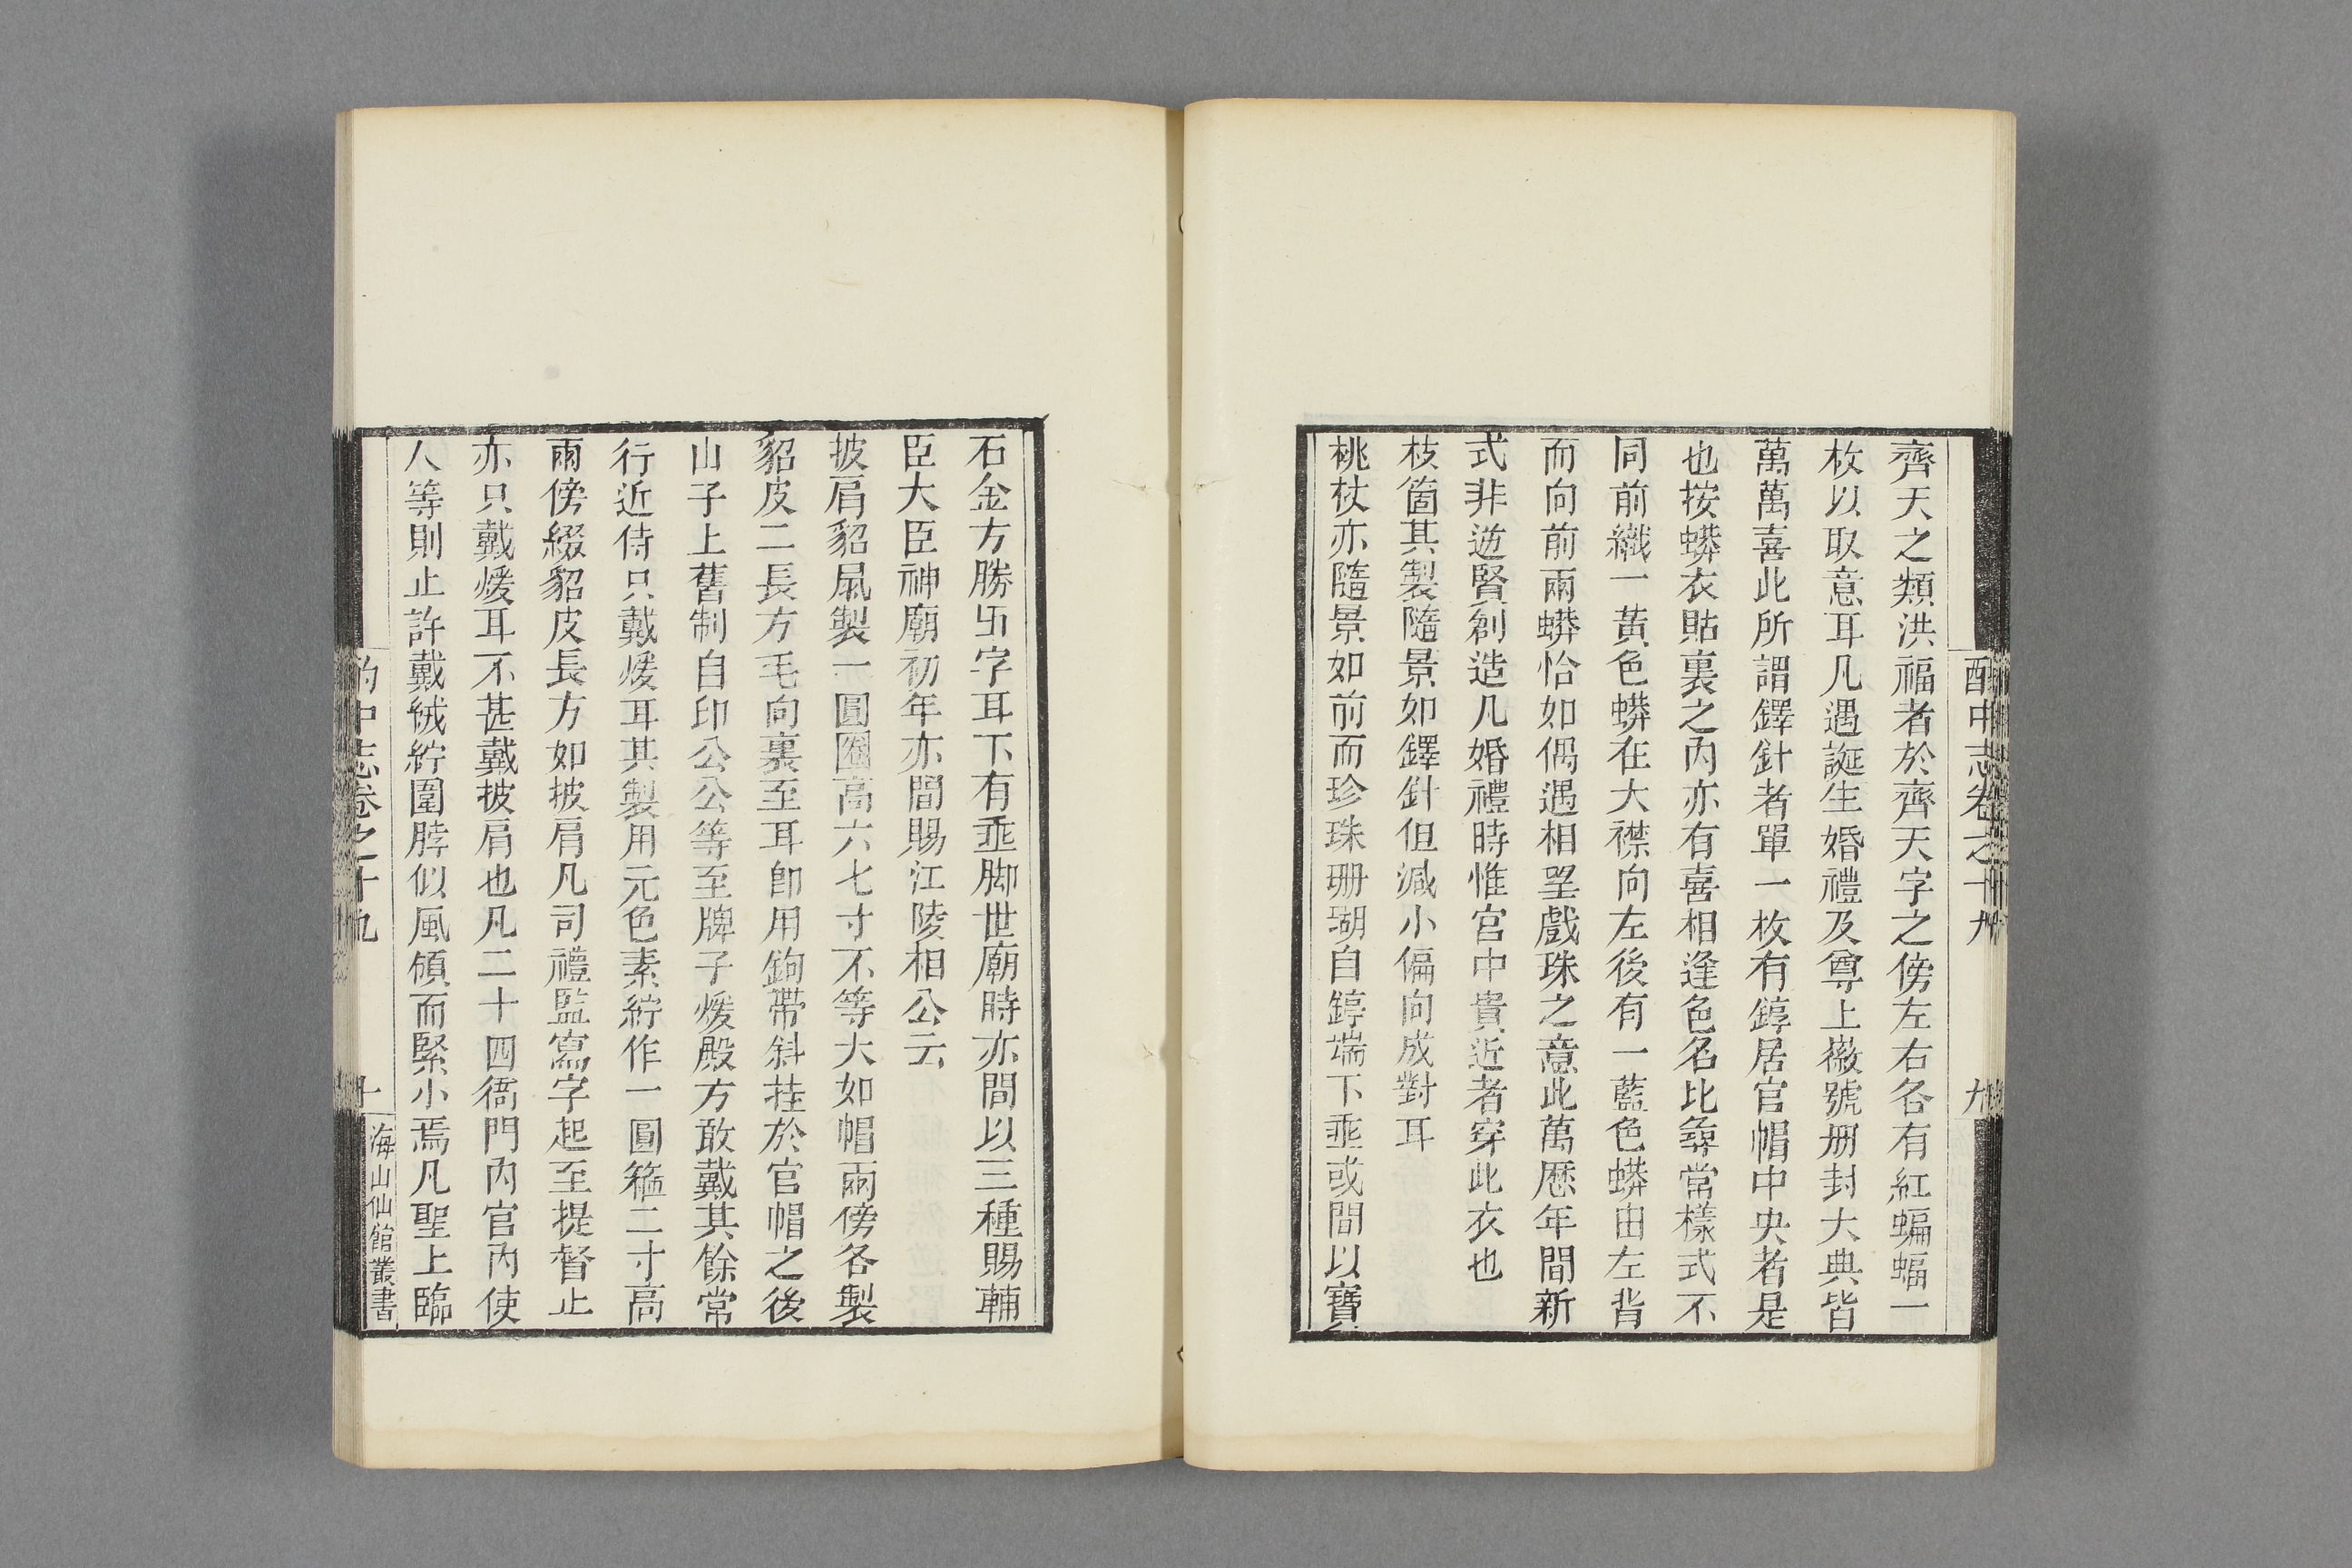 酌中志卷之十九
九
齊天之類洪福者於齊天字之傍左右各有紅蝙蝠一
枚以取意耳凡遇誕生婚禮及尊上徽號册封大典皆
萬萬喜此所謂鐸針者單一枚有錞居官帽中央者是
也按蟒衣貼裏之內亦有喜相逢色名比尋常樣式不
同前織一黃色蟒在大襟向左後有一藍色蟒由左背
而向前兩蟒恰如偶遇相望戲珠之意此萬厯年間新
式非逆賢創造凡婚禮時惟宮中貴近者穿此衣也
枝箇其製隨景如鐸針但減小偏向成對耳
桃杖亦隨景如前而珍珠珊瑚自錞端下垂或間以寶
石金方勝卐字耳下有垂脚世廟時亦間以三種賜輔
臣大臣神廟初年亦間賜江陵相公云
披肩貂鼠製一圓圈高六七寸不等大如帽兩傍各製
貂皮二長方毛向裏至耳卽用鉤帶斜挂於官帽之後
山子上舊制自印公公等至牌子煖殿方敢戴其餘常
行近侍只戴煖耳其製用元色素紵作一圓箍二寸高
兩傍綴貂皮長方如披肩凡司禮監寫字起至提督止
亦只戴煖耳不甚戴披肩也凡二十四衙門內官內使
人等則止許戴絨紵圍脖似風領而緊小焉凡聖上臨
酌中志卷之十九
十
海山仙館叢書